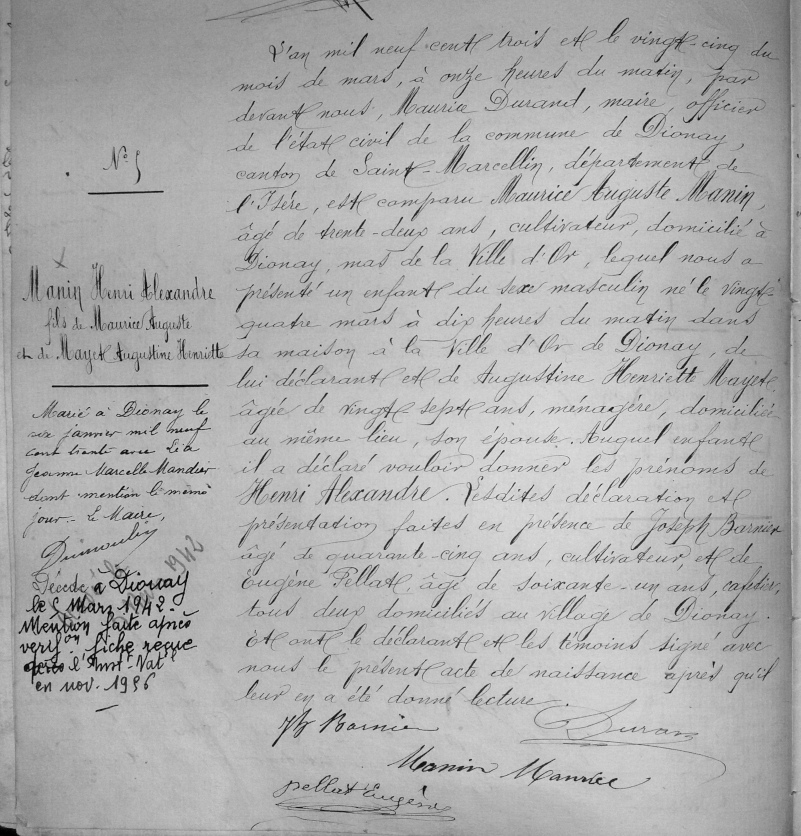 N° 5
Manin Henri Alexandre
fils de Maurice Auguste
et de Mayet Augustine Henriette
Marié à Dionay le
six janvier mil neuf
cent trente avec Léa
Jeanne Marcelle Mandier
dont mention le même
jour. - Le Maire,
Dumoulin
Décédé à Dionay
le 5 Mars 1942.
Mention faite après
verif^on fiche reçue
de l'Inst. Nat^l
en nov. 1956
1942
L'an mil neuf cent trois et le vingt-cinq du
mois de mars, à onze heures du matin, par
devant nous, Maurice Durand, maire, officier
de l'état civil de la commune de Dionay,
canton de Saint-Marcellin, département de
l'Isère, est comparu Maurice Auguste Manin,
âgé de trente-deux ans, cultivateur, domicilié à
Dionay, mas de la Ville d'Or, lequel nous a
présenté un enfant du sexe masculin né le vingt-
quatre mars à dix heures du matin dans
sa maison à la Ville d'Or de Dionay, de
lui déclarant et de Augustine Henriette Mayet
âgée de vingt sept ans, ménagère, domiciliée
au même lieu, son épouse. Auquel enfant
il a déclaré vouloir donner les prénoms de
Henri Alexandre. Lesdites déclaration et
présentation faites en présence de Joseph Barnier
âgé de quarante-cinq ans, cultivateur, et de
Eugène Pellat, âgé de soixante-un ans, cafetier,
tous deux domiciliés au village de Dionay.
Et ont le déclarant et les témoins signé avec
nous le présent acte de naissance après qu'il
leur en a été donné lecture.
Barnier
Durand
Manin Maurice
pellat Eugène